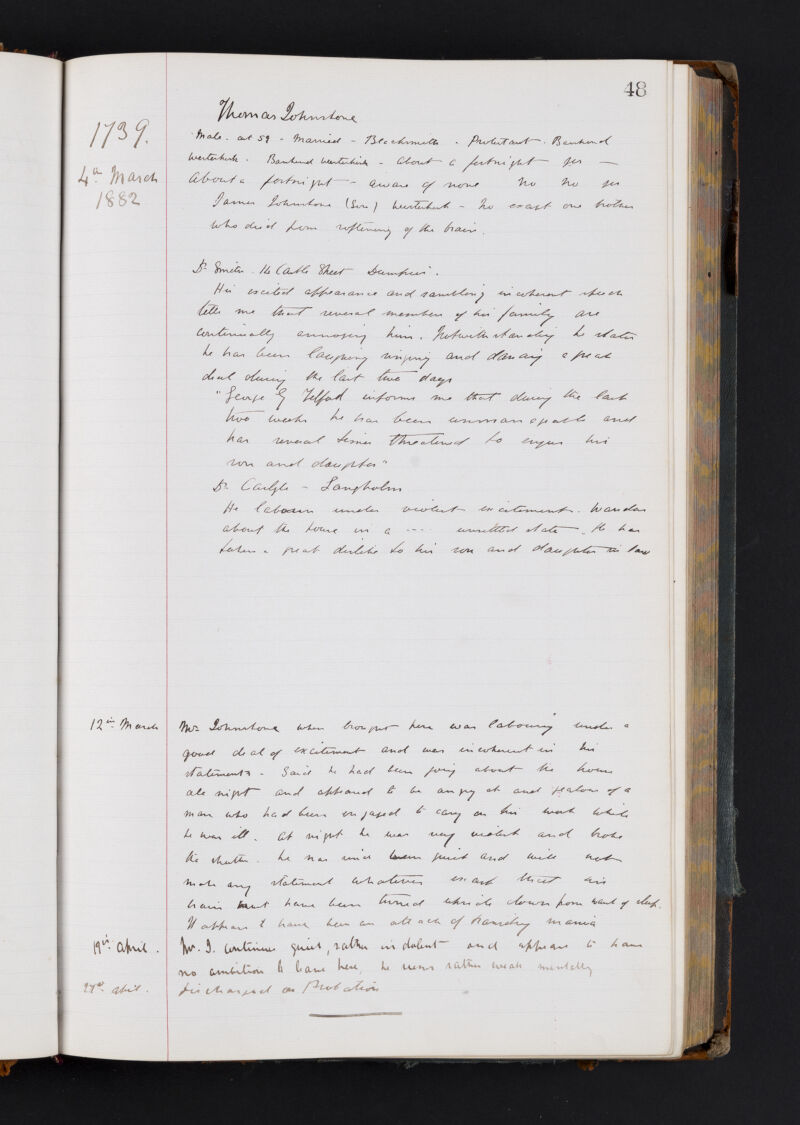 48
1739.
4th March
1882
Thomas Johnstone
Male - at 59 - Married - Blacksmith - Protestant - Bankend
Westerkirk - Bankend Westerkirk - about a fortnight yes -
About a fortnight - aware of none No No yes
James Johnstone (Son) Westerkirk - No except one brother
who died from softening of the brain.
Dr Smith - Castle Street Dumfries.
His excited appearance and rambling incoherent speech
tells me that several members of his family are
continually annoying him. Notwithstanding he states
he has been laughing singing and dancing a great
deal during the last two days
"George G Telford informs me that during the last
two weeks he has been unmanageable and
has several times threatened to injure his
son and daughter"
Dr Carlyle - Langholm
He labours under violent excitement. Wanders
about the house in a --- unsettled state. He has
taken a great dislike to his son and daughter in law
12th March Mr Johnstone when brought here was labouring under a
good deal of excitement and was incoherent in his
statements. Said he had been going about the house
all night and appeared to be angry at and jealous of a
man who had been engaged to carry on his work while
he was ill. At night he was very violent and broke
the shutter. He has since been quiet and will not
make any statement whatever except that his
brain must have been turned upside down from want of sleep.
It appears to have been an attack of transitory mania
19th April. Mr. J. continues quiet, rather indolent and appears to have
no ambition to leave here, he seems rather weak mentally
27th April. Discharged on Probation